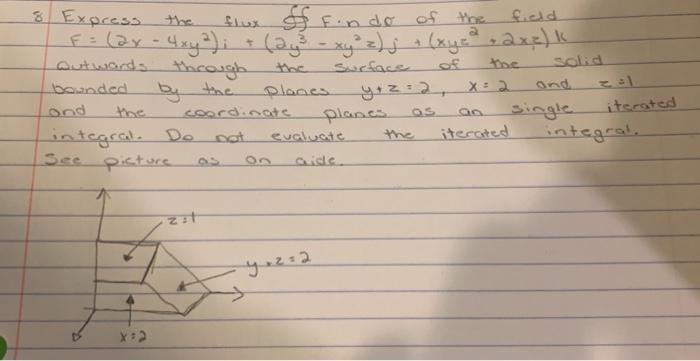 8 Express the flux ∯ F·n dσ of the field
F = (2x - 4xy²)i + (2y³ - xy²z)j + (xyz² + 2xz)k
outwards through the surface of the solid
bounded by the planes y+z=2, x=2 and z=1
and the coordinate planes as an single iterated
integral. Do not evaluate the iterated integral.
See picture as an aide.
z=1
y+z=2
x=2